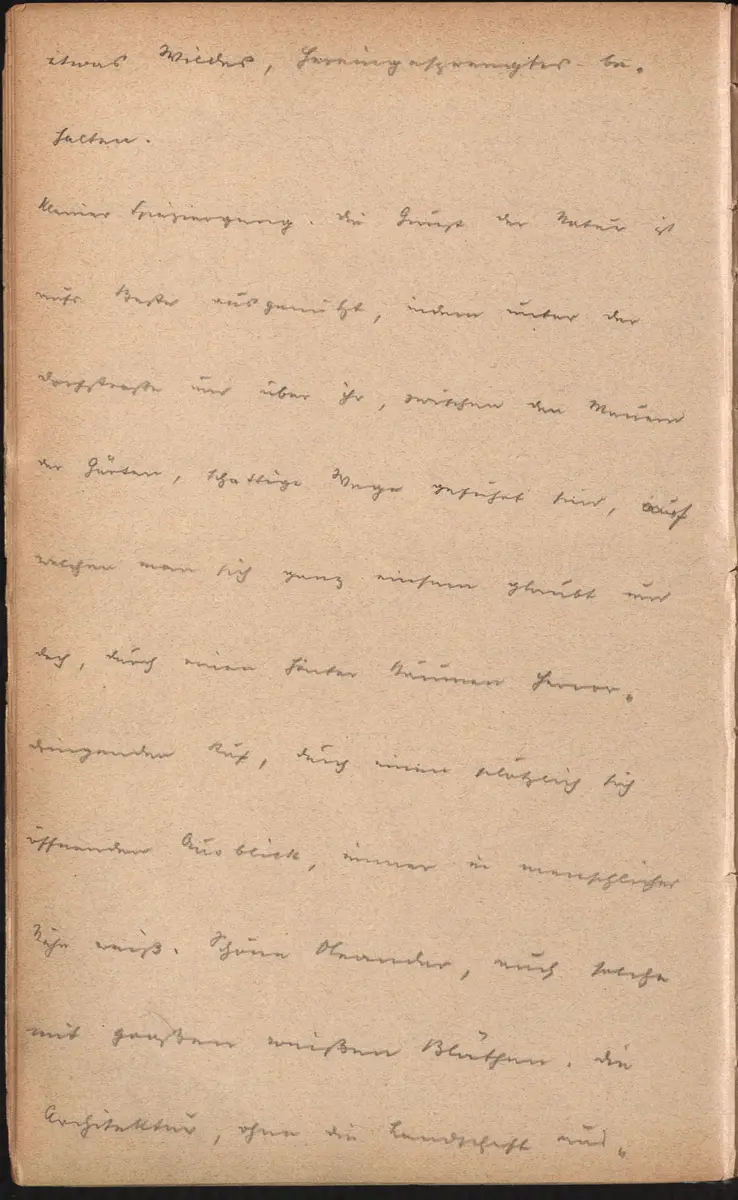 etwas Wildes, Hereingesprengtes be-
halten.
Kleiner Spaziergang. Die Gunst der Natur ist
aufs Beste ausgenützt, indem unter der
Dorfstraße und über ihr, zwischen den Mauern
der Gärten, schattige Wege geführt sind, auf
welchen man sich ganz einsam glaubt und
doch, durch einen hinter Bäumen hervor-
dringenden Ruf, durch einen plötzlich sich
öffnenden Ausblick, immer in menschlicher
Nähe weiß. Schöne Oleander, auch solche
mit großen weißen Blüthen. Die
Architektur, ohne die Landschaft aus-